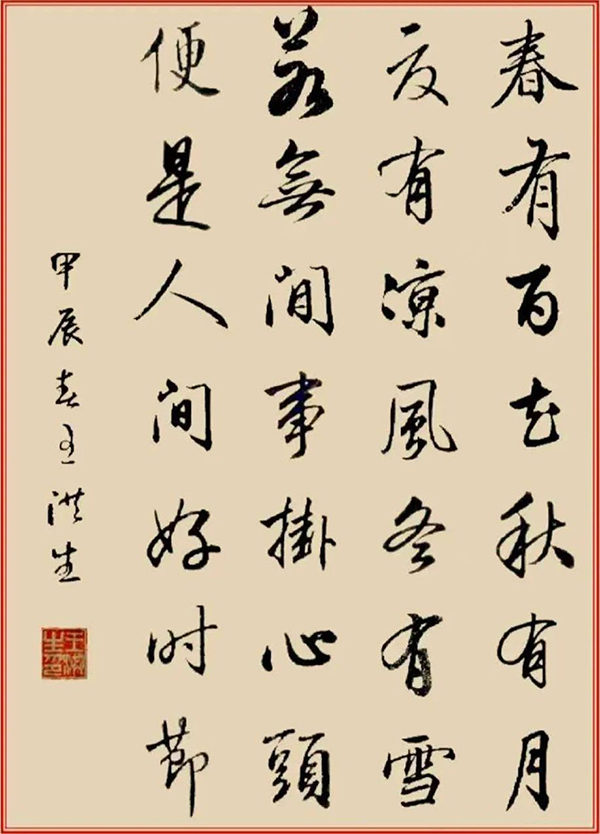 春有百花秋有月
夏有凉風冬有雪
若無閒事掛心頭
便是人间好时節
甲辰春王洪生
王洪生印